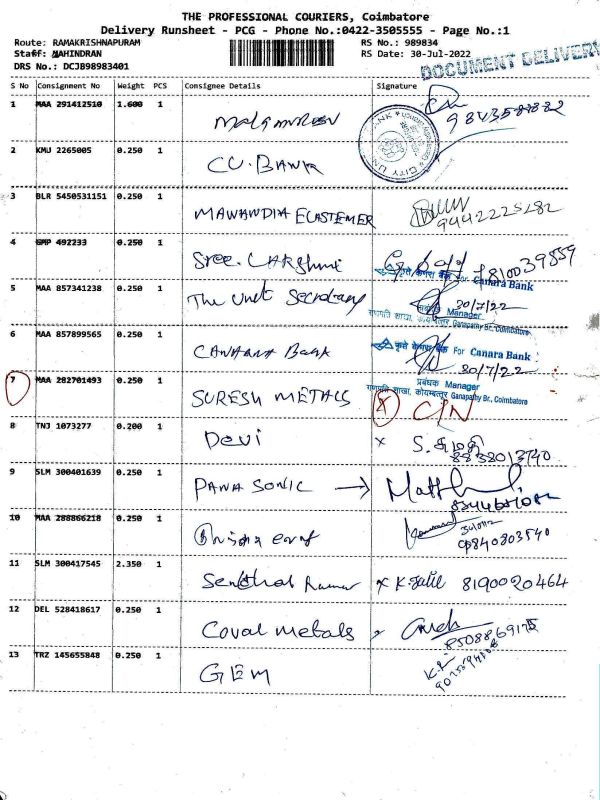 THE PROFESSIONAL COURIERS, Coimbatore
Delivery Runsheet - PCG - Phone No.:0422-3505555 - Page No.:1
Route: RAMAKRISHNAPURAM
RS No.: 989834
Staff: MAHINDRAN
RS Date: 30-Jul-2022
DRS No.: DCJB98983401
DOCUMENT DELIVERY
S No Consignment No Weight PCS Consignee Details Signature
1 MAA 291412510 1.600 1
CITY UN BANK
2 KMJ 2265005 0.250 1 CU.BANK
3 BLR 5450531151 0.250 1 MAWANDIA ELASTEMER 9442225282
4 GMP 492233 0.250 1 Sree. LAKShmi
कृते केनरा बैंक For Canara Bank
5 MAA 857341238 0.250 1 The Unit Secretary 30/7/22
Manager
गणपति शाखा, कोयम्बत्तूर Ganapathy Br., Coimbatore
6 MAA 857899565 0.250 1 CANARA Bank
कृते केनरा बैंक For Canara Bank
30/7/22
प्रबंधक Manager
गणपति शाखा, कोयम्बत्तूर Ganapathy Br., Coimbatore
7 MAA 282701493 0.250 1 SURESH METALS X C/N
8 TNJ 1073277 0.200 1 Devi x
9 SLM 300401639 0.250 1 PANA SONIC →
10 MAA 288866218 0.250 1
11 SLM 300417545 2.350 1 Senthal Kumar x 8190020464
12 DEL 528418617 0.250 1 Coval metals
8508869175
13 TRZ 145655848 0.250 1 GEM